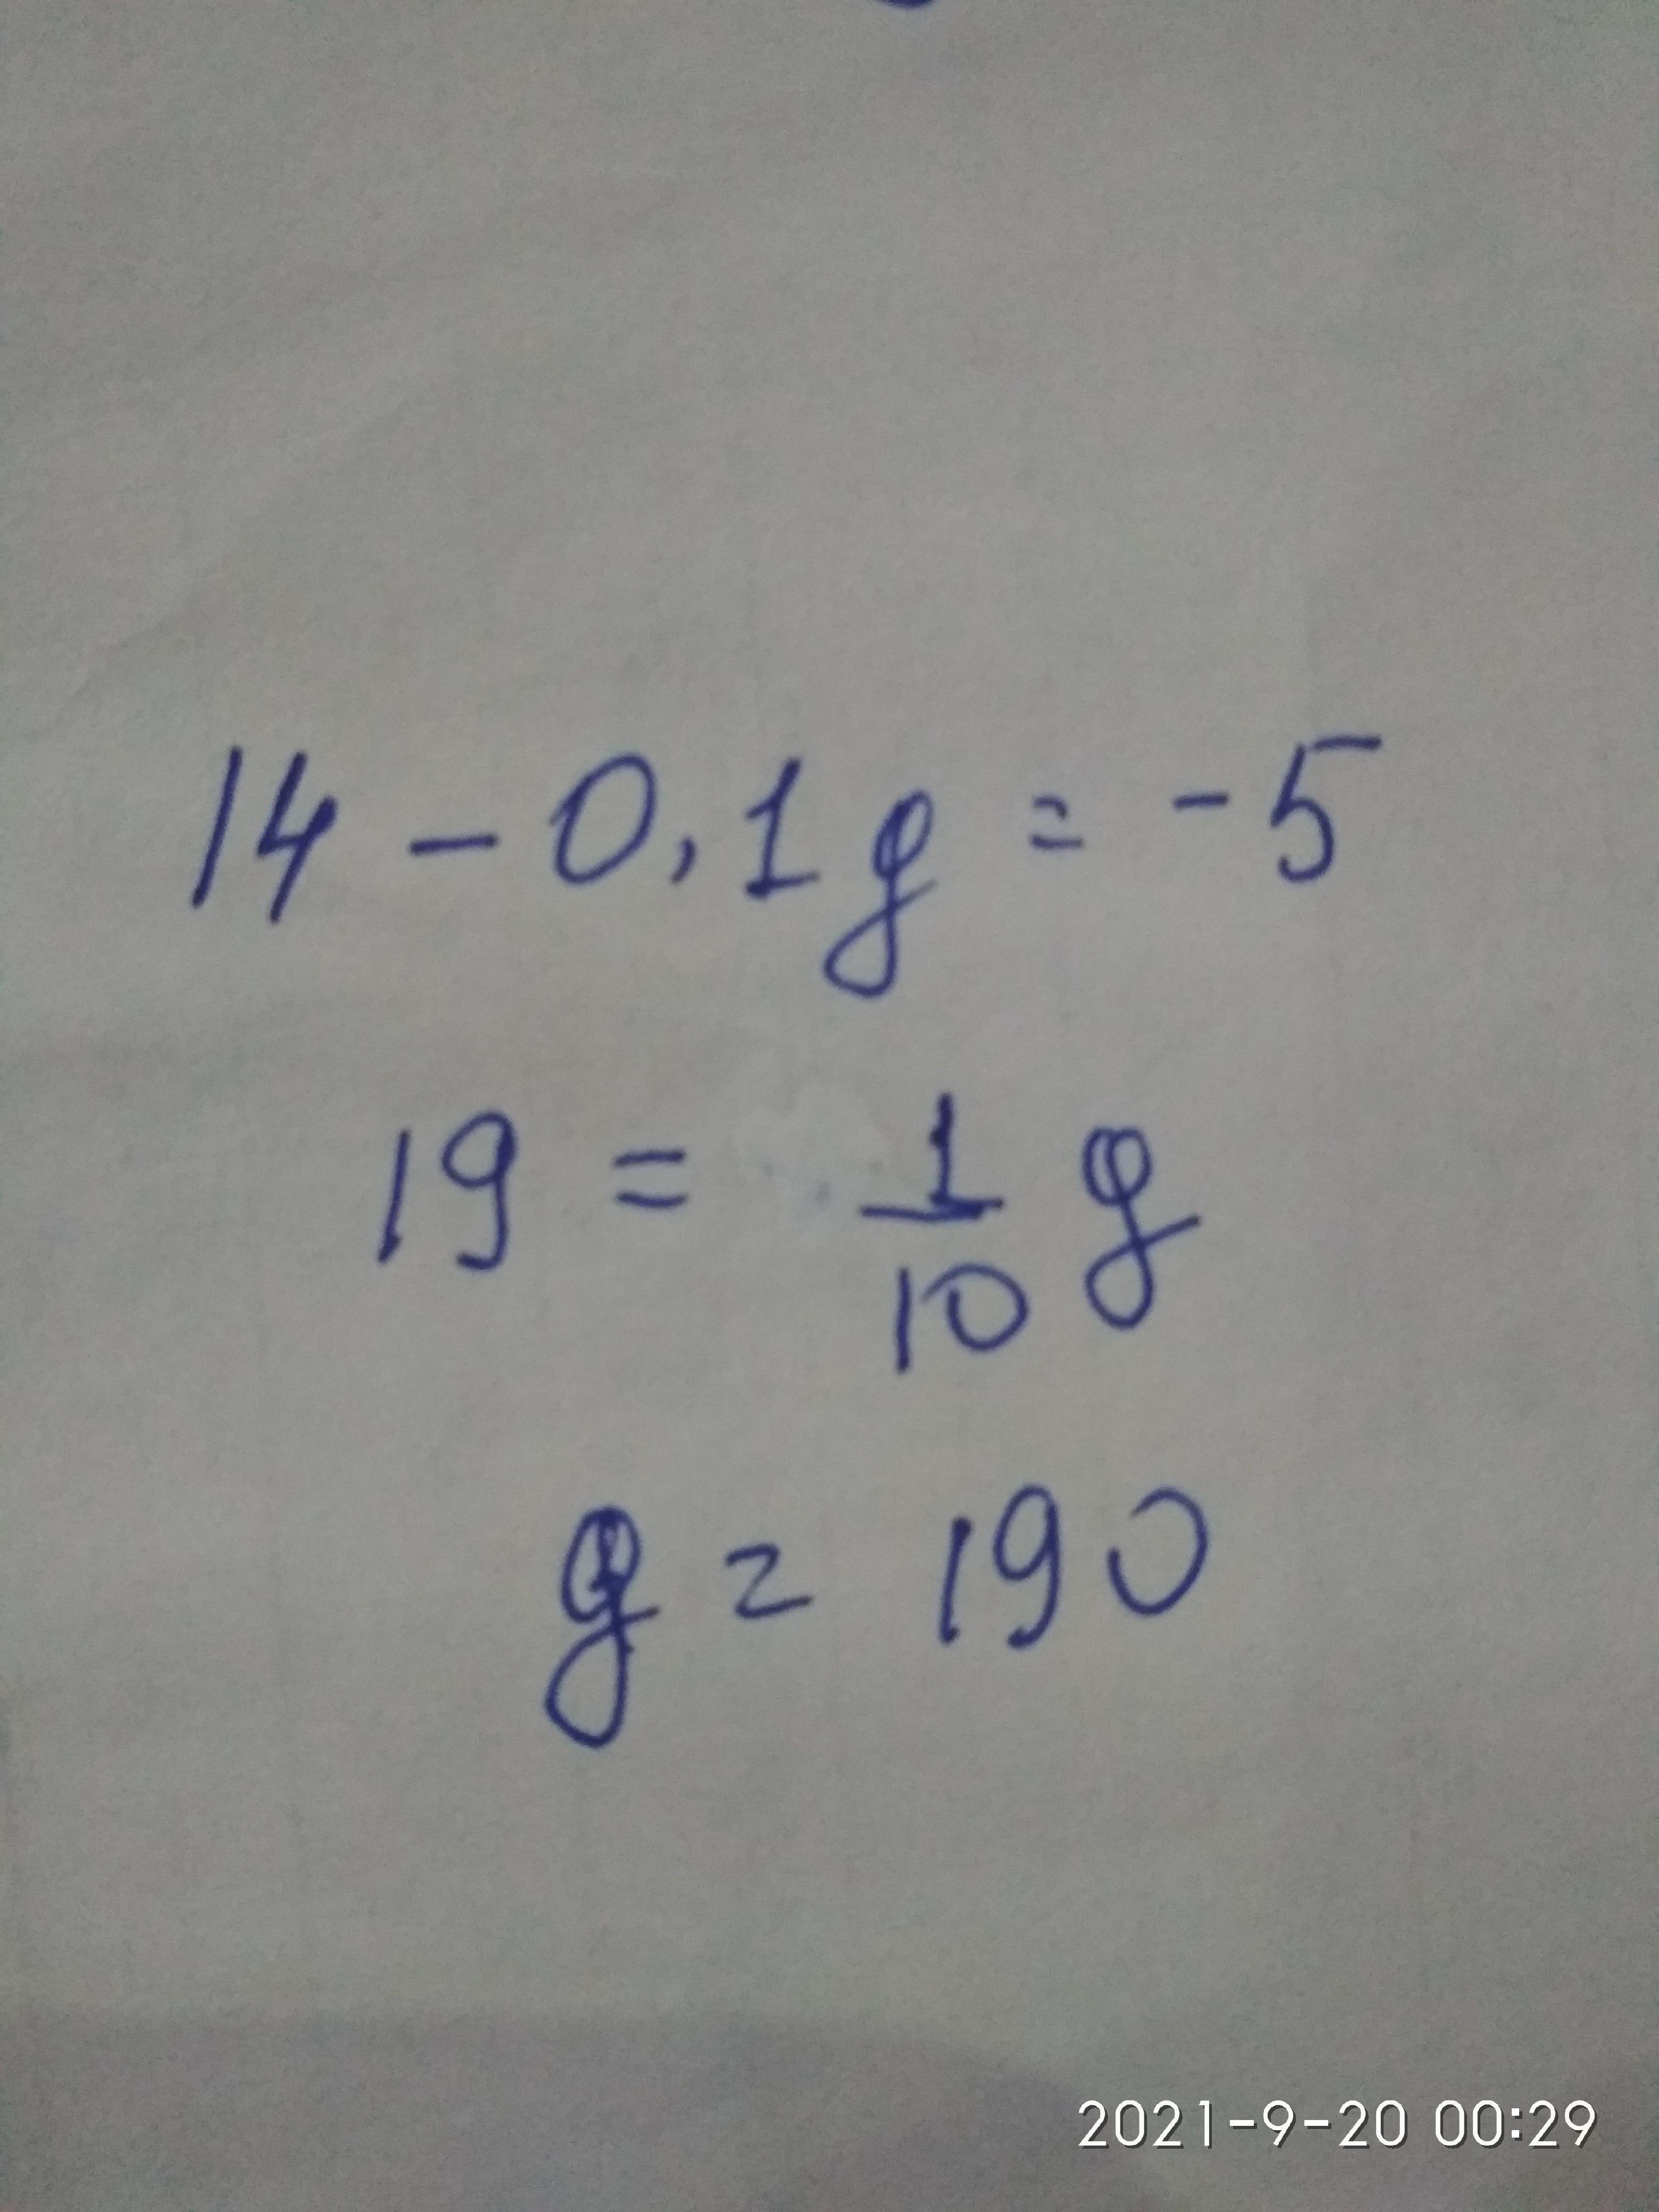 14 - 0,1g = -5
19 = 1/10 g
g = 190
2021-9-20 00:29